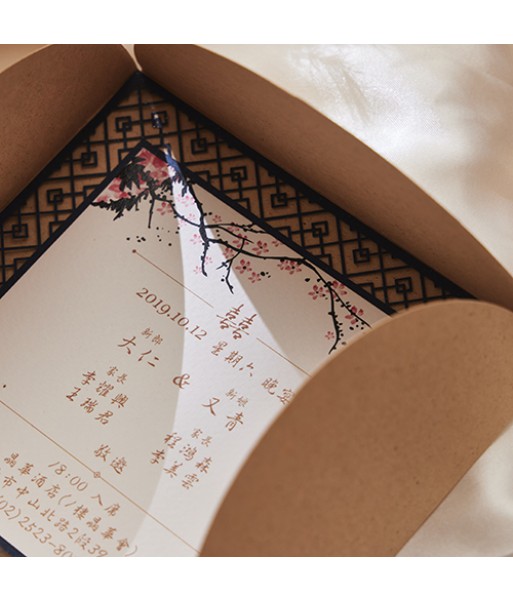 囍
2019.10.12 星期六 晚宴
新郎 新娘
大仁 & 又青
家長 家長
李耀興 程鴻森
王瑞君 李美雲
敬邀
18:00 入席
晶華酒店(1樓晶華會)
市中山北路2段39
(02)2523-80